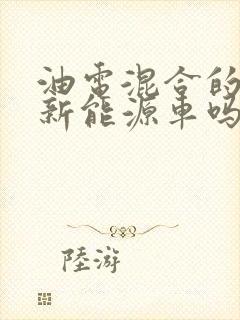 油電混合的
新能源車吗
陸游